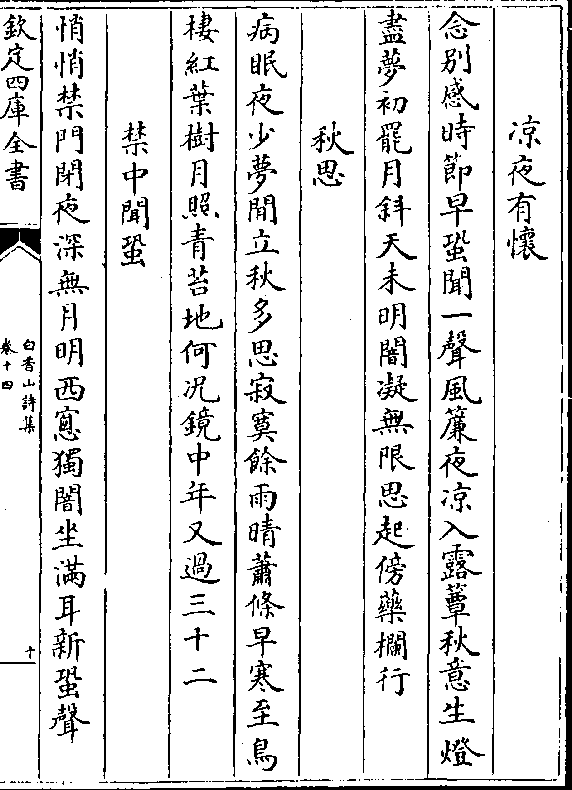 凉夜有懐
念别感時節早蛩聞一聲風簾夜凉入露蕈秋意生燈
盡夢初罷月斜天未明闇凝無限思起傍藥欄行
秋思
病眠夜少夢閒立秋多思寂寞餘雨晴蕭條早寒至鳥
棲紅葉樹月照青苔地何况鏡中年又過三十二
禁中聞蛩
悄悄禁門閉夜深無月明西窓獨闇坐滿耳新蛩聲
欽定四庫全書
白香山詩集
卷十四
十